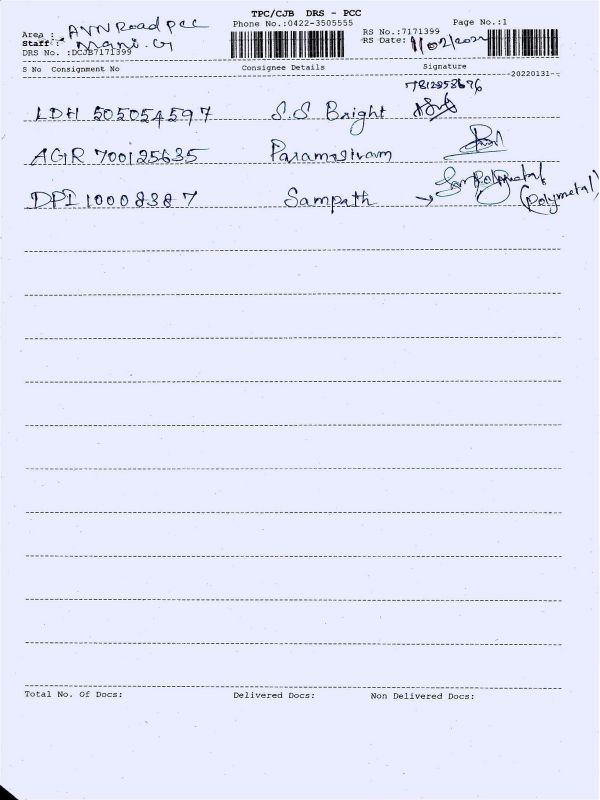 TPC/CJB DRS - PCC
Phone No.:0422-3505555
Page No.:1
Area : AVN Road pcc
RS No.:7171399
Staff : Mani.G
RS Date: 1/02/2022
DRS No. :DCJB7171399
S No Consignment No Consignee Details Signature
-20220131-
LDH 505054597 S.S Bright
AGR 700125635 Paramasivam
DPI 10008387 Sampath →
(Polymetal)
Total No. Of Docs: Delivered Docs: Non Delivered Docs: